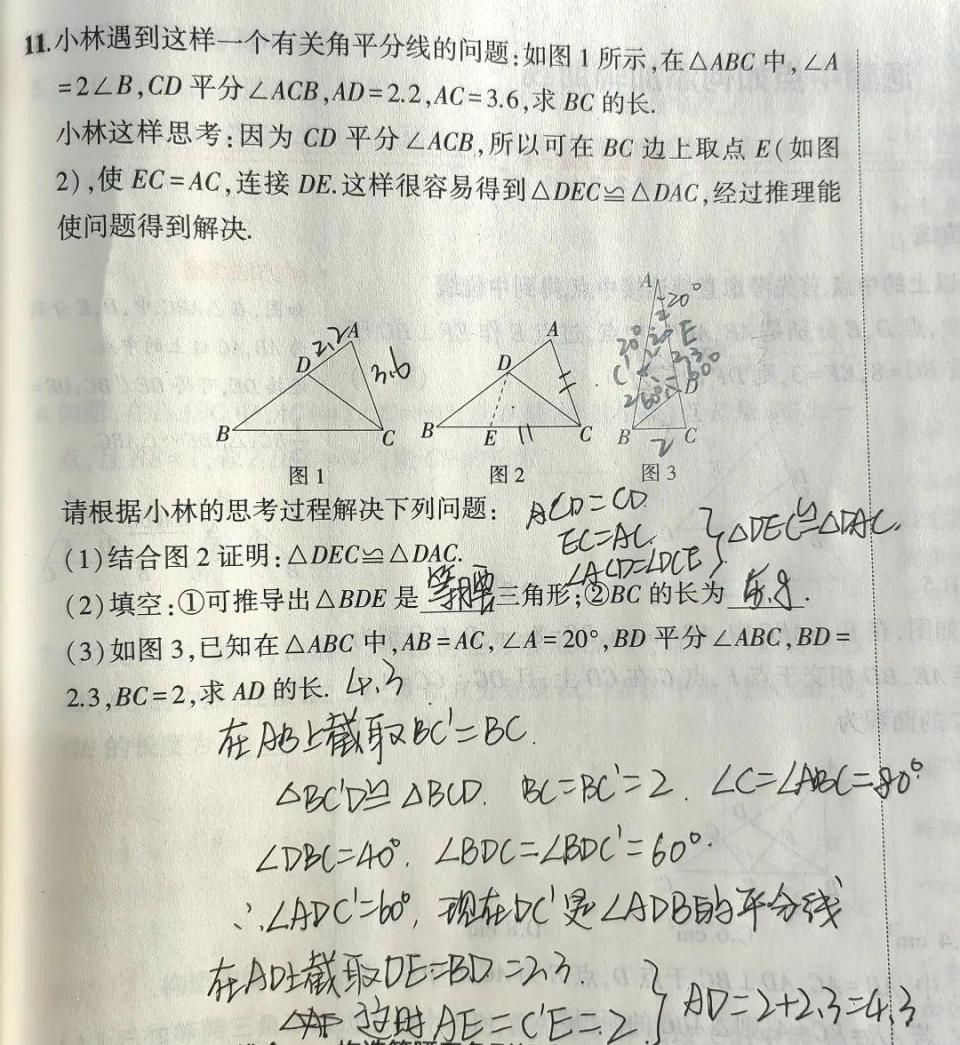 11.小林遇到这样一个有关角平分线的问题:如图1所示,在△ABC中,∠A
=2∠B,CD平分∠ACB,AD=2.2,AC=3.6,求BC的长.
小林这样思考:因为CD平分∠ACB,所以可在BC边上取点E(如图
2),使EC=AC,连接DE.这样很容易得到△DEC≌△DAC,经过推理能
使问题得到解决.
A
D
2.2
3.6
B
C
图1
A
D
B
E
C
图2
A
20°
20°
E
2.3
C'
60°
D
2
60°
B
2
C
图3
请根据小林的思考过程解决下列问题:
CD=CD
(1)结合图2证明:△DEC≌△DAC.
EC=AC
∠ACD=∠DCE
} △DEC≌△DAC.
(2)填空:①可推导出△BDE是等腰三角形;②BC的长为5.8.
(3)如图3,已知在△ABC中,AB=AC,∠A=20°,BD平分∠ABC,BD=
2.3,BC=2,求AD的长. 4.3
在AB上截取BC'=BC.
△BC'D≌△BCD. BC=BC'=2. ∠C=∠ABC=80°.
∠DBC=40°. ∠BDC=∠BDC'=60°.
∴∠ADC'=60°, 现在DC'是∠ADB的平分线
在AD上截取DE=BD=2.3.
这时AE=C'E=2 } AD=2+2.3=4.3